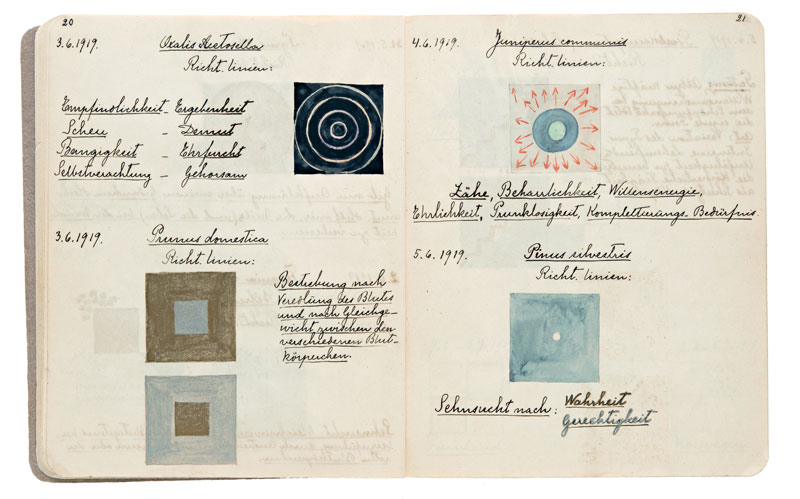 20
3.6.1919. Oxalis Acetosella
Richt. linien:
Empfindlichkeit – Ergebenheit
Scheu – Demut
Bangigkeit – Ehrfurcht
Selbstverachtung – Gehorsam
3.6.1919. Prunus domestica
Richt. linien:
Bestrebung nach
Veredlung des Blutes
und nach Gleichge-
wicht zwischen den
verschiedenen Blut-
körperchen.
21
4.6.1919. Juniperus communis
Richt. linien:
Zähe, Beharrlichkeit, Willensenergie,
Ehrlichkeit, Prunklosigkeit, Komplettierungs-Bedürfnis.
5.6.1919. Pinus silvestris
Richt. linien:
Sehnsucht nach: Wahrheit
Gerechtigkeit